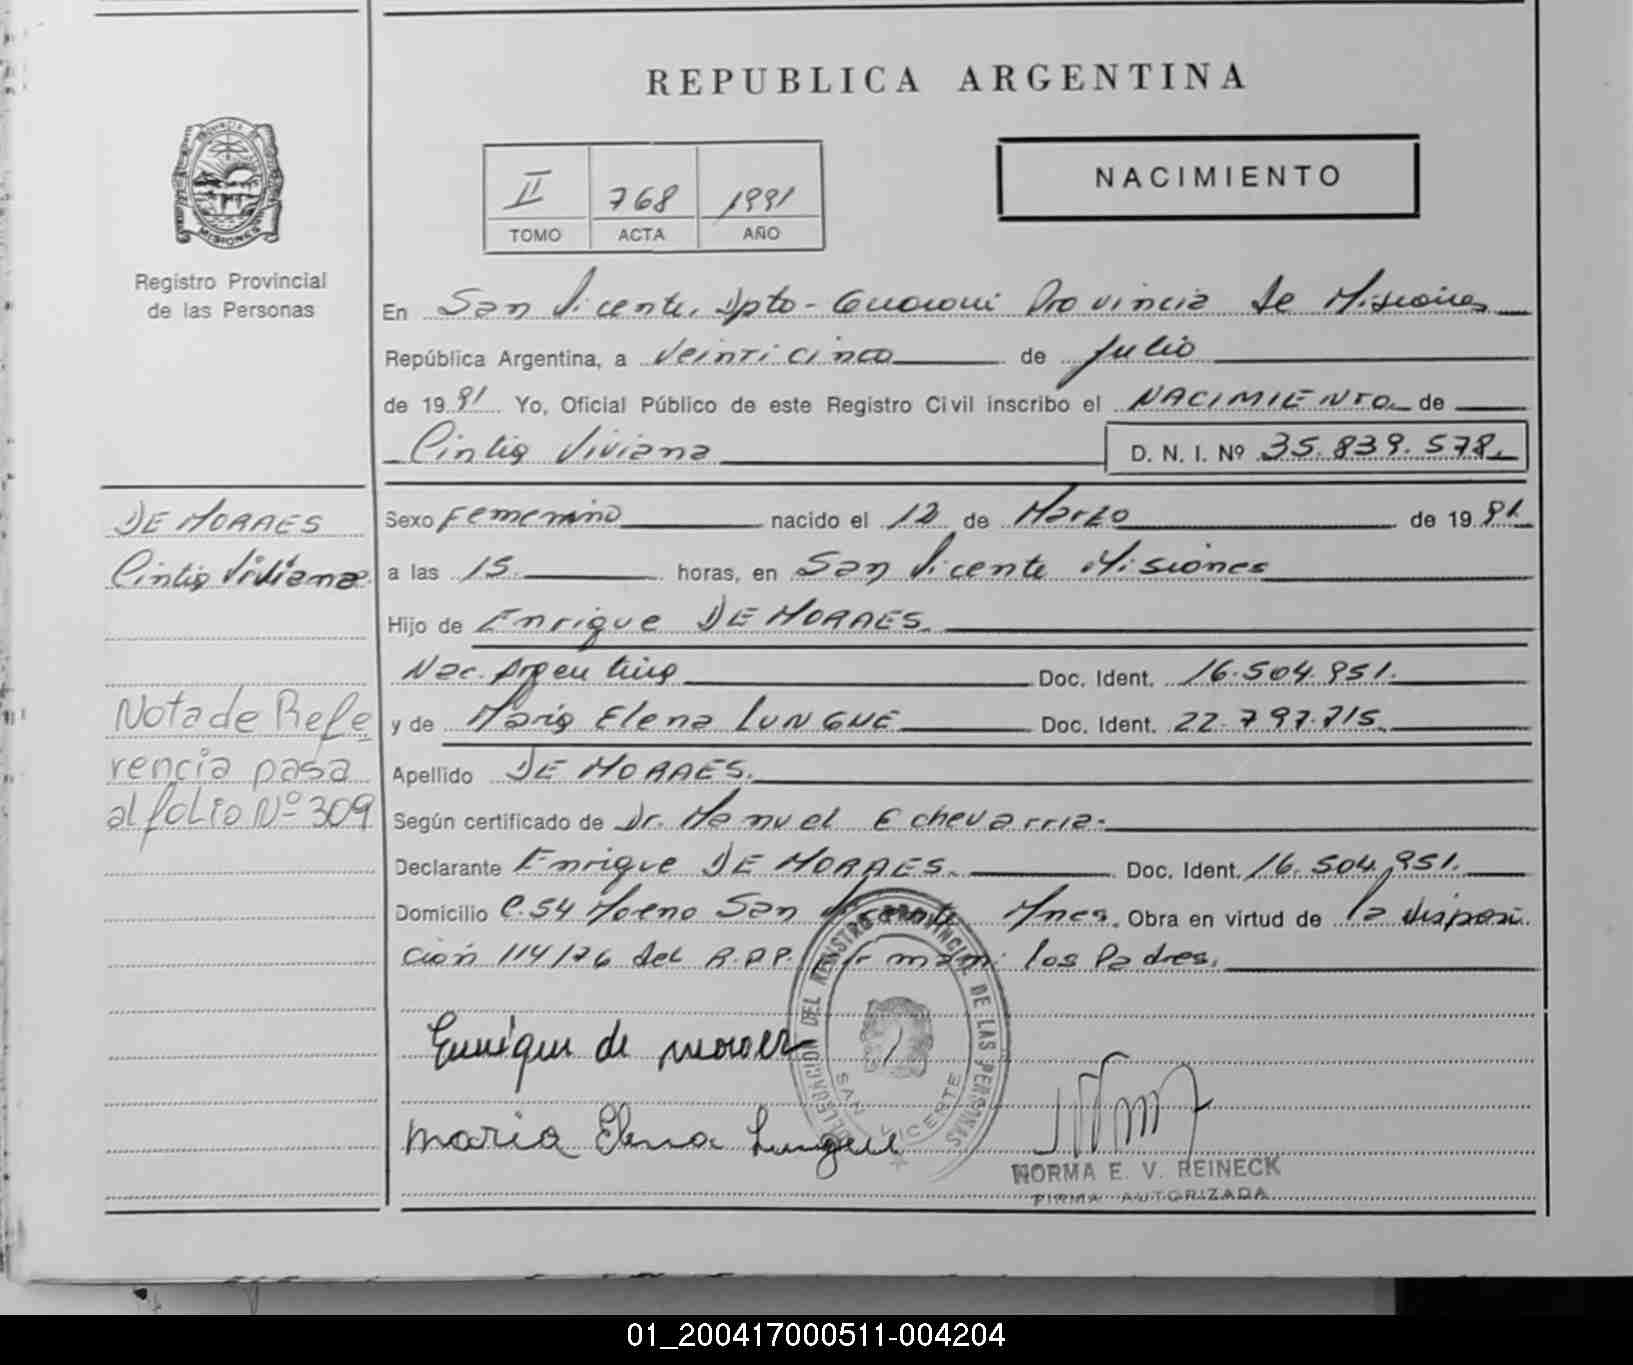 REPUBLICA ARGENTINA
II 768 1991
TOMO ACTA AÑO
NACIMIENTO
MISIONES
Registro Provincial
de las Personas
En San Vicente, Dpto - Guarani Provincia de Misiones
República Argentina, a veinticinco de julio
de 1991 Yo, Oficial Público de este Registro Civil inscribo el NACIMIENTO de
Cintia Viviana D. N. I. Nº 35.839.578.
DE MORAES
Cintia Viviana
Nota de Refe
rencia pasa
al folio Nº 309
Sexo Femenino nacido el 12 de Marzo de 1991.
a las 15. horas, en San Vicente Misiones
Hijo de Enrique DE MORAES.
Nac. Argentina Doc. Ident. 16.504.951.
y de Maria Elena LUNGUE Doc. Ident. 22.797.715.
Apellido DE MORAES.
Según certificado de Dr. Manuel Echevarria.
Declarante Enrique DE MORAES. Doc. Ident. 16.504.951.
Domicilio C.54 Moreno San Vicente Mnes. Obra en virtud de la disposi
ción 114/76 del R.P.P. firman: los Padres.
Enrique de moraez
maria Elena Lungue
DELEGACION DEL REGISTRO PROVINCIAL DE LAS PERSONAS
SAN VICENTE
NORMA E. V. REINECK
FIRMA AUTORIZADA
01_200417000511-004204